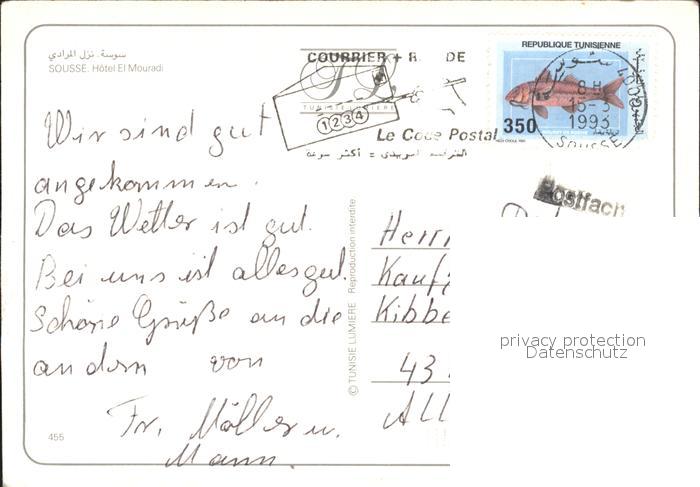 سوسة. نزل المرادي
SOUSSE. Hôtel El Mouradi
COURRIER + R DE
TL
TUNISIE LUMIERE
1234
Le Code Postal
REPUBLIQUE TUNISIENNE
350
8H
15-3
1993
SOUSSE
Postfach
Wir sind gut
angekommen.
Das Wetter ist gut.
Bei uns ist alles gut.
Schöne Grüße an die
andern von
Fr. Möller u.
Mann.
455
© TUNISIE LUMIERE Reproduction interdite
Herrn
Kauf
Kibbe
43
All
privacy protection
Datenschutz